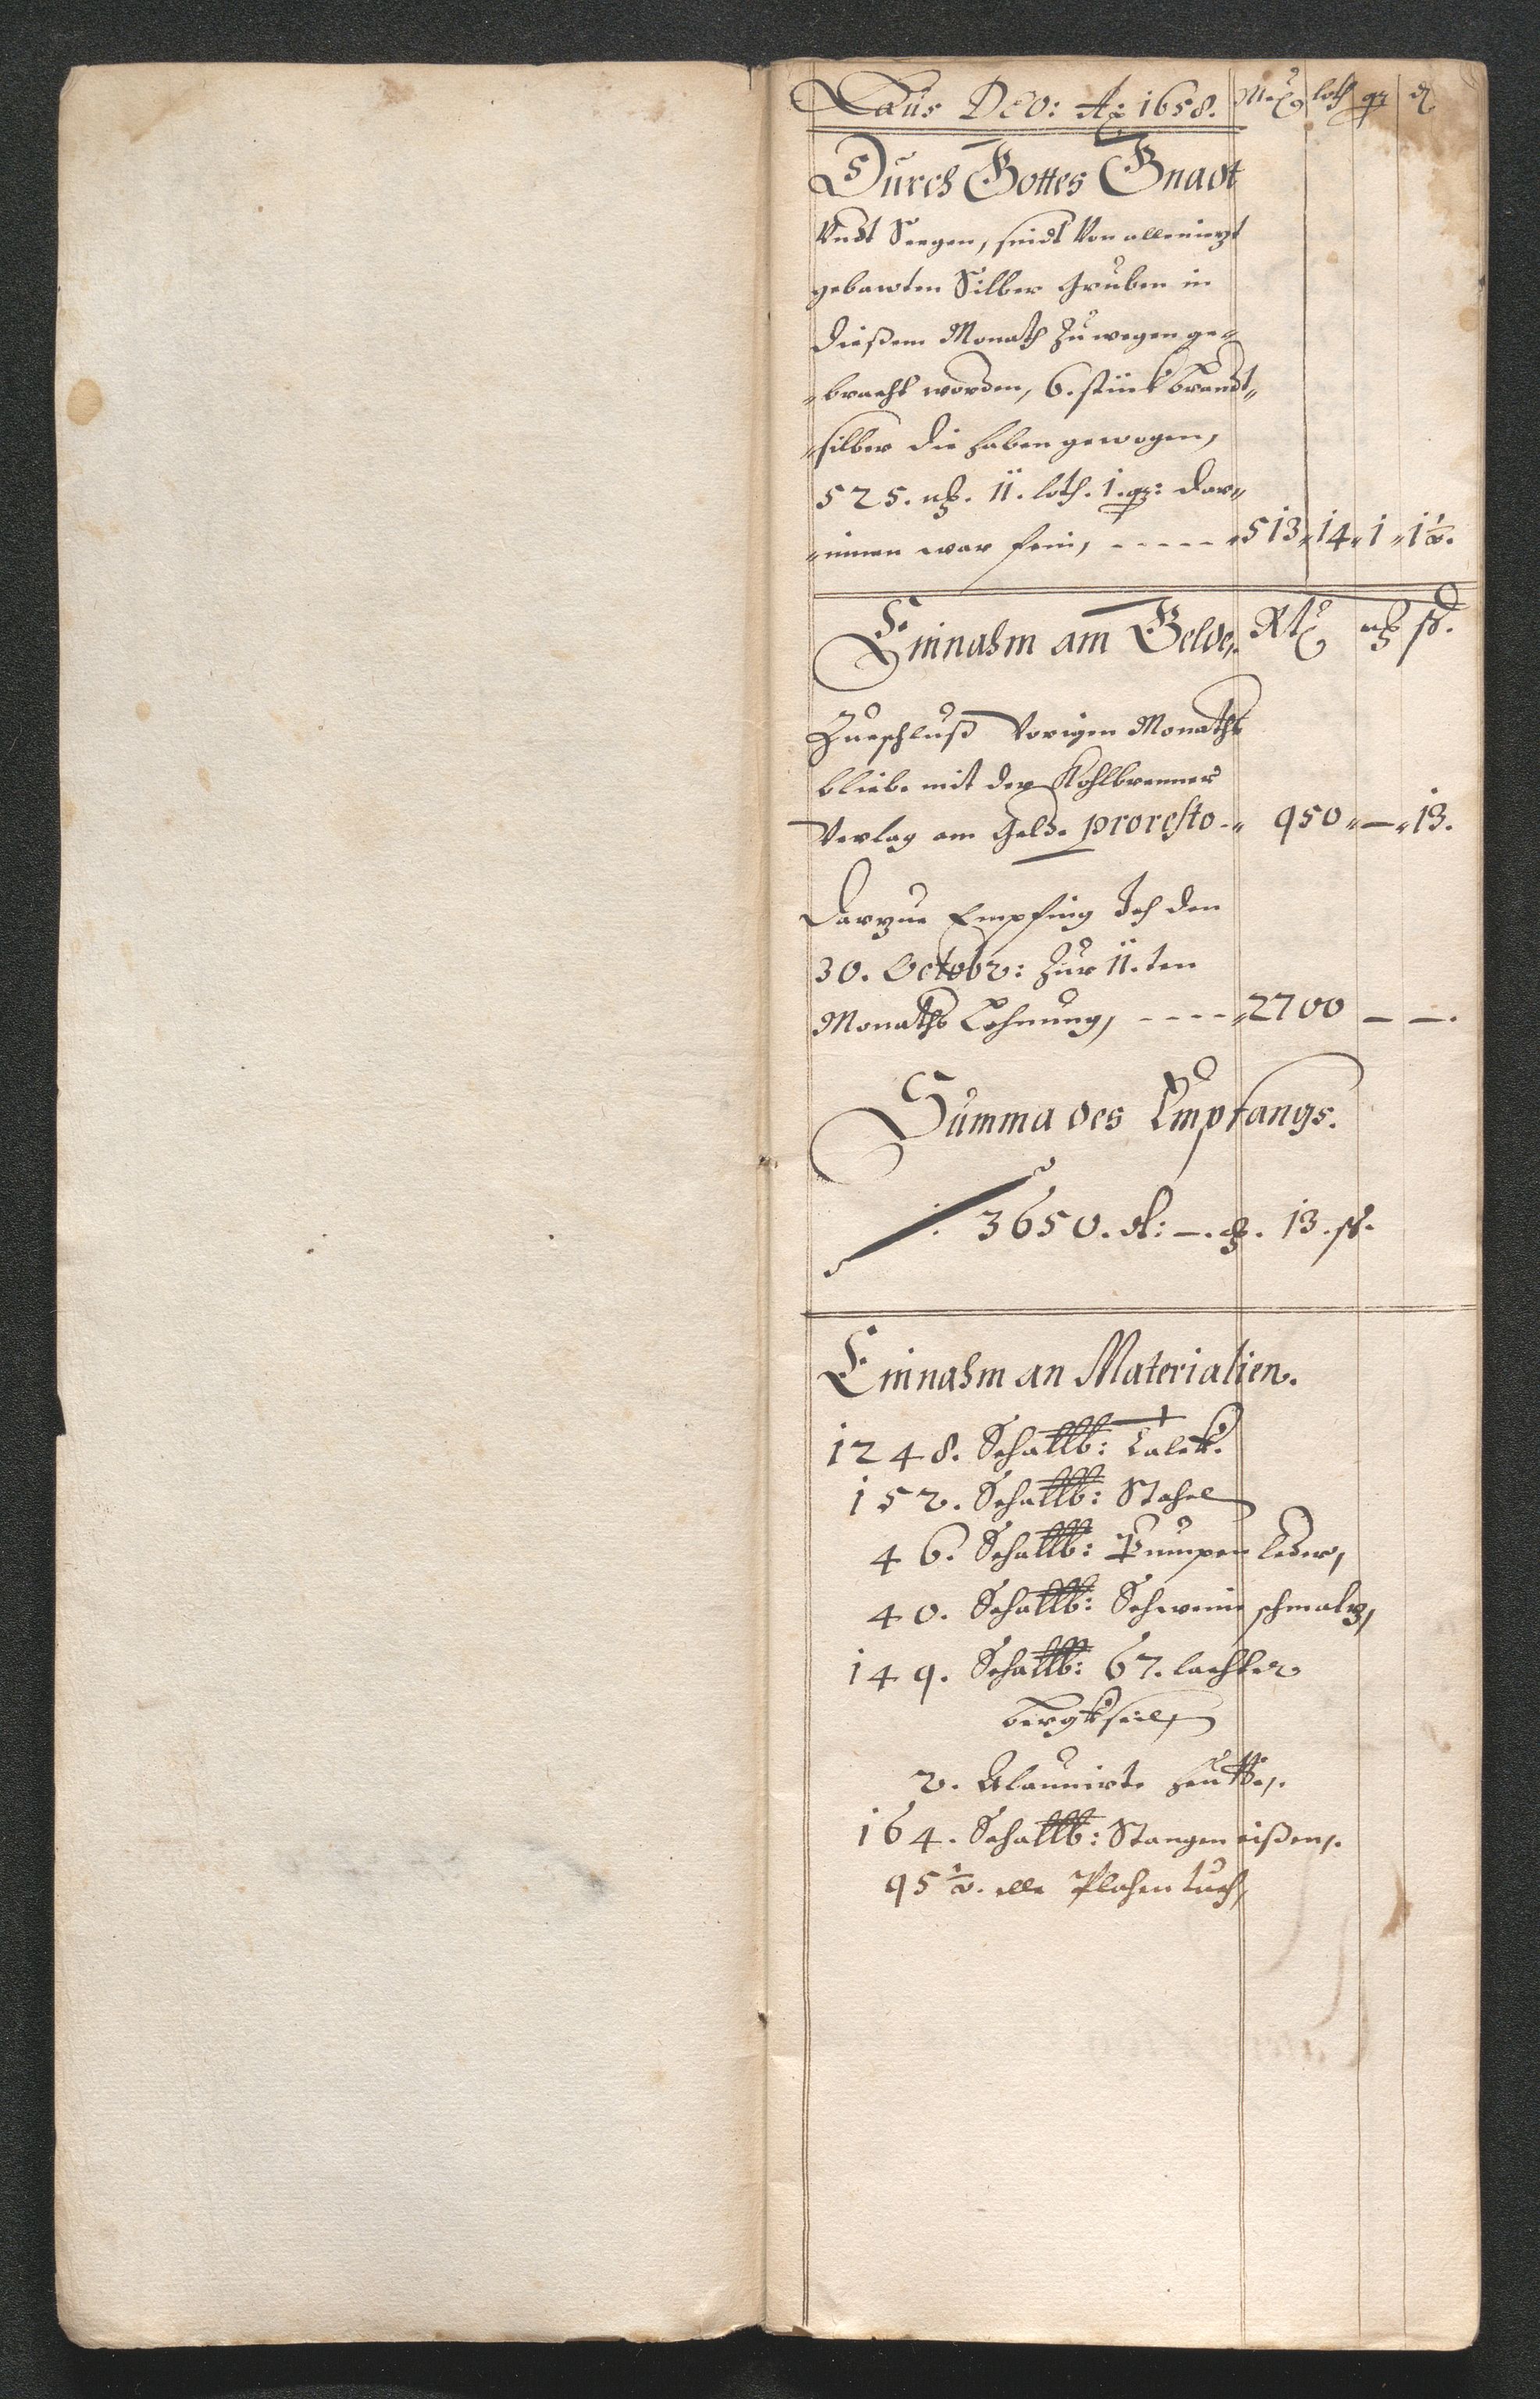 Laus DEO: Aō 1658. loth q d
Durch Gottes Gnadt
Vndt Seegen, seindt Von allen iezt
gebawten Silber Gruben in
dießem Monath Zuwegen ge-
-bracht worden, 6. stück brandt-
-silber die haben gewogen,
525. mk. 11. loth. 1. q: dar-
-innen war fein, ----- 513 14 1 1½.
Einnahm am Gelde,. Rtl mk ß.
Zue schluß Vorigen Monaths
bliebe mit der Kohlbrenner
Verlag am Gelde proresto - 950 — 13.
Darzue Empfing Ich den
30. Octobr: Zur 11.ten
Monaths Lohnung, ---- 2700 — —.
Summa des Empfangs.
3650. —. mk. 13. ß.
Einnahm an Materialien.
1248. Schallb:
152. Schallb: Stahel
46. Schallb: Pumpen leder,
40. Schallb: Schweine schmaltz,
149. Schallb: 67. lachter
bergkseile,
2. Alaunirte heutte,.
164. Schallb: Stangen eißen,.
95½. elle Plahen tuch,